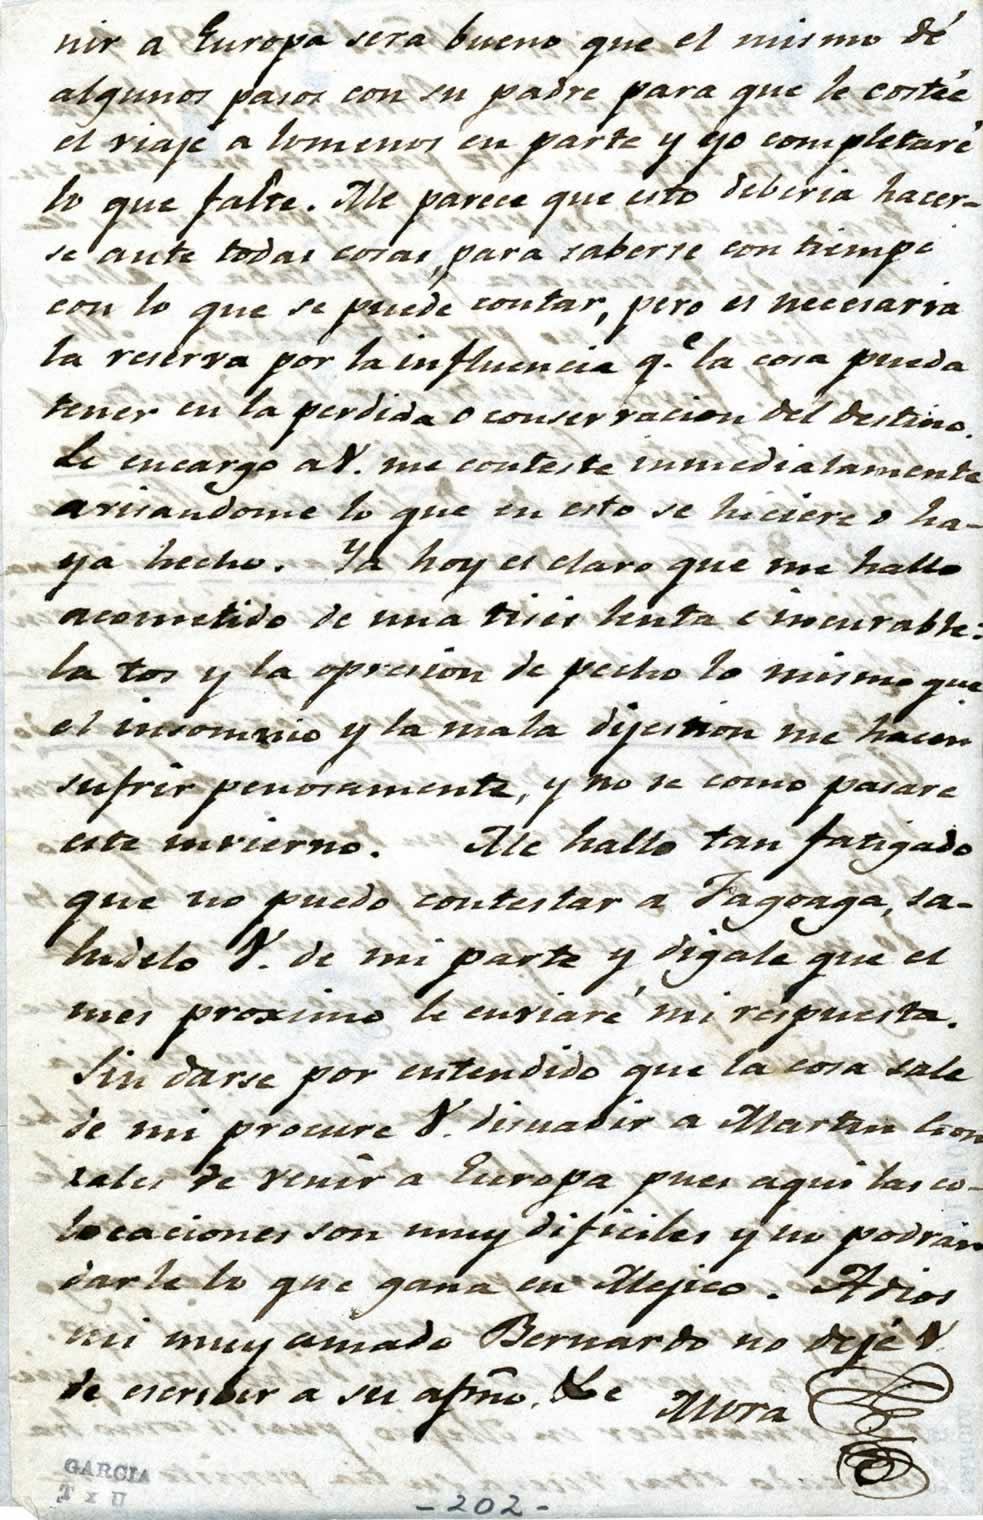 nir a Europa sera bueno que el mismo dé
algunos pasos con su padre para que le costée
el viaje a lomenos en parte y yo completaré
lo que falte. Me parece que esto deberia hacer-
se ante todas cosas, para saberse con tiempo
con lo que se puede contar, pero es necesaria
la reserva por la influencia q.e la cosa pueda
tener en la perdida o conservacion del destino.
Le encargo a V. me conteste inmediatamente
avisandome lo que en esto se hiciere o ha-
ya hecho. Ya hoy es claro que me hallo
acometido de una tisis lenta e incurable:
la tos y la opresion de pecho lo mismo que
el insomnio y la mala dijestion me hacen
sufrir penosamente, y no se como pasare
este invierno. Me hallo tan fatigado
que no puedo contestar a Fagoaga, sa-
ludelo V. de mi parte y digale que el
mes proximo le enviaré mi respuesta.
Sin darse por entendido que la cosa sale
de mi procure V. disuadir a Martin Gon
zales de venir a Europa pues aqui las co-
locaciones son muy dificiles y no podrán
darle lo que gana en Mejico. Adios
mi muy amado Bernardo no dejé V.
de escribir a su afmo.
Mora
GARCIA
T x II
- 202 -